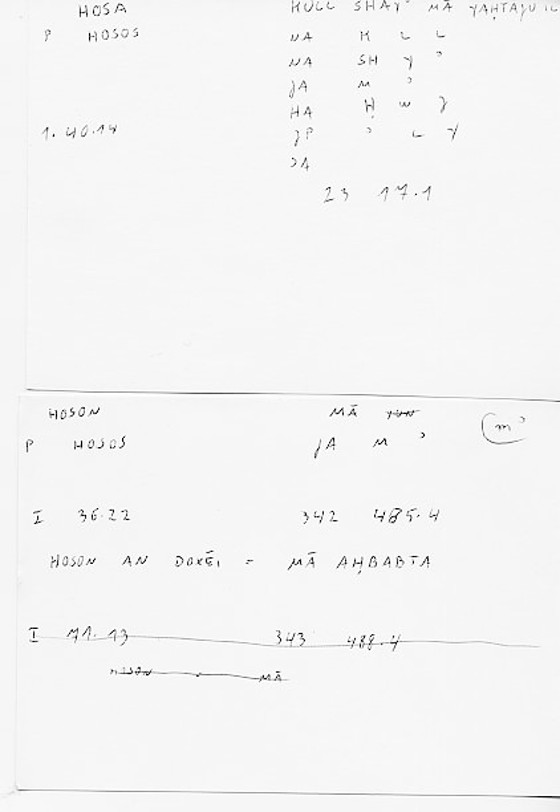 HOSA KULL SHAYʾ MĀ YAḤTAJU IL
P HOSOS NA K L L
NA SH Y ʾ
JA M ʾ
HA Ḥ W J
1. 40.14 JP ʾ L Y
JA
23 17.1
HOSON MĀ (mʾ
P HOSOS JA M ʾ
I 36.22 342 485.4
HOSON AN DOKĒI = MĀ AḤBABTA
I 71. 13 343 488.4
HOSON - MĀ